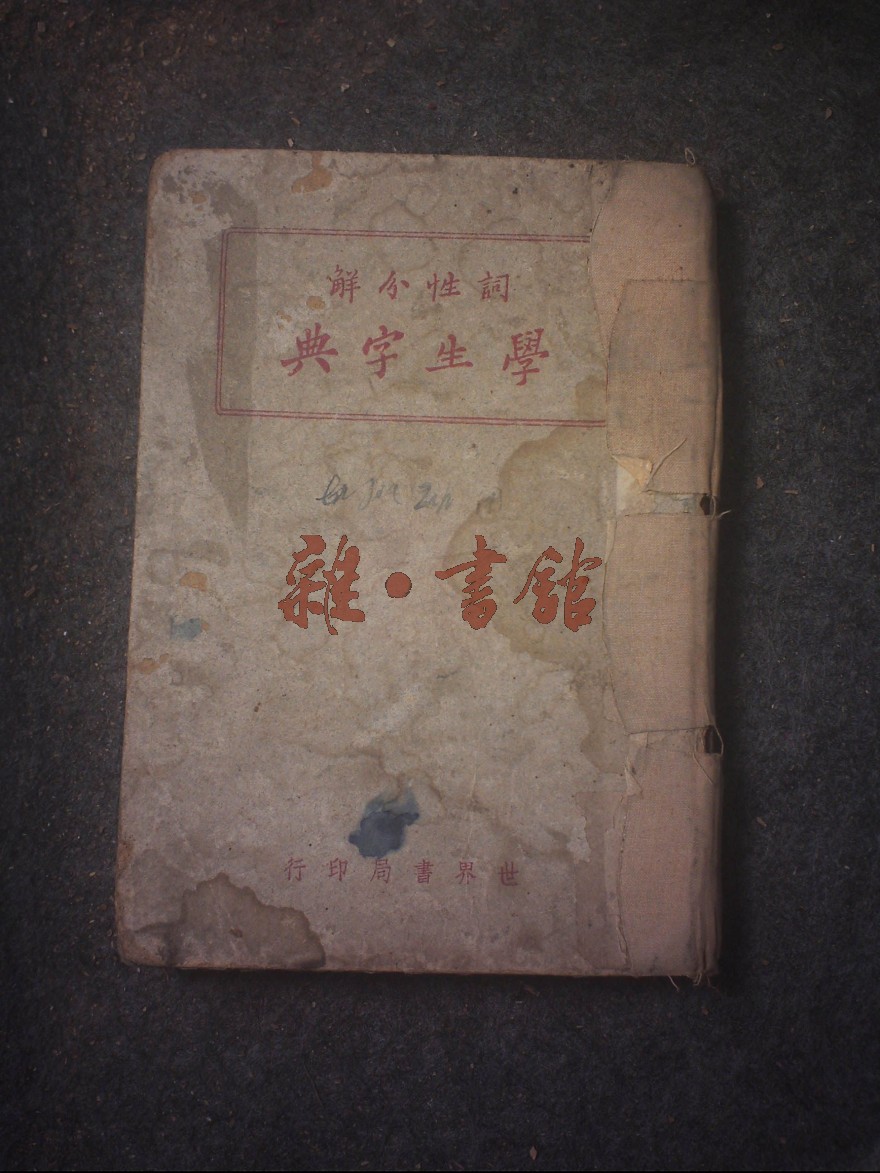 詞性分解
學生字典
雜•書館
世界書局印行